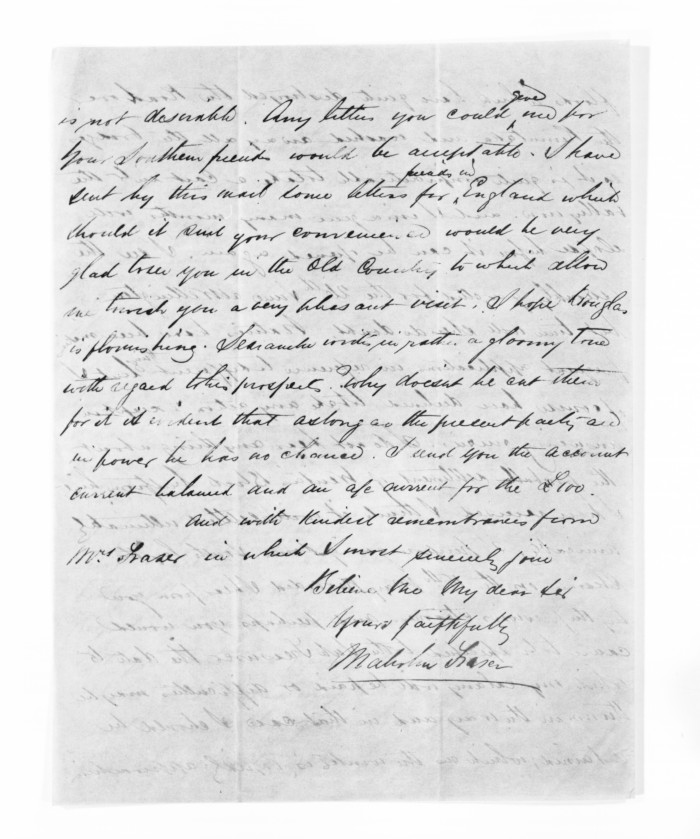 is not desirable. Any letters you could give me for
your Southern friends would be acceptable. I have
sent by this mail some letters for friends in England which
should it suit your convenience would be very
glad to see you in the Old Country to which allow
me to wish you a very pleasant visit. I hope Douglas
is flourishing. writes in rather a gloomy tone
with regard to his prospects. Why doesnt he cut
for it is evident that as long as the present party are
in power he has no chance. I send you the account
current balanced and an a/c current for the £100.
And with kindest remembrances from
Mrs Fraser in which I most sincerely join
Believe me My dear Sir
Yours faithfully
Malcolm Fraser